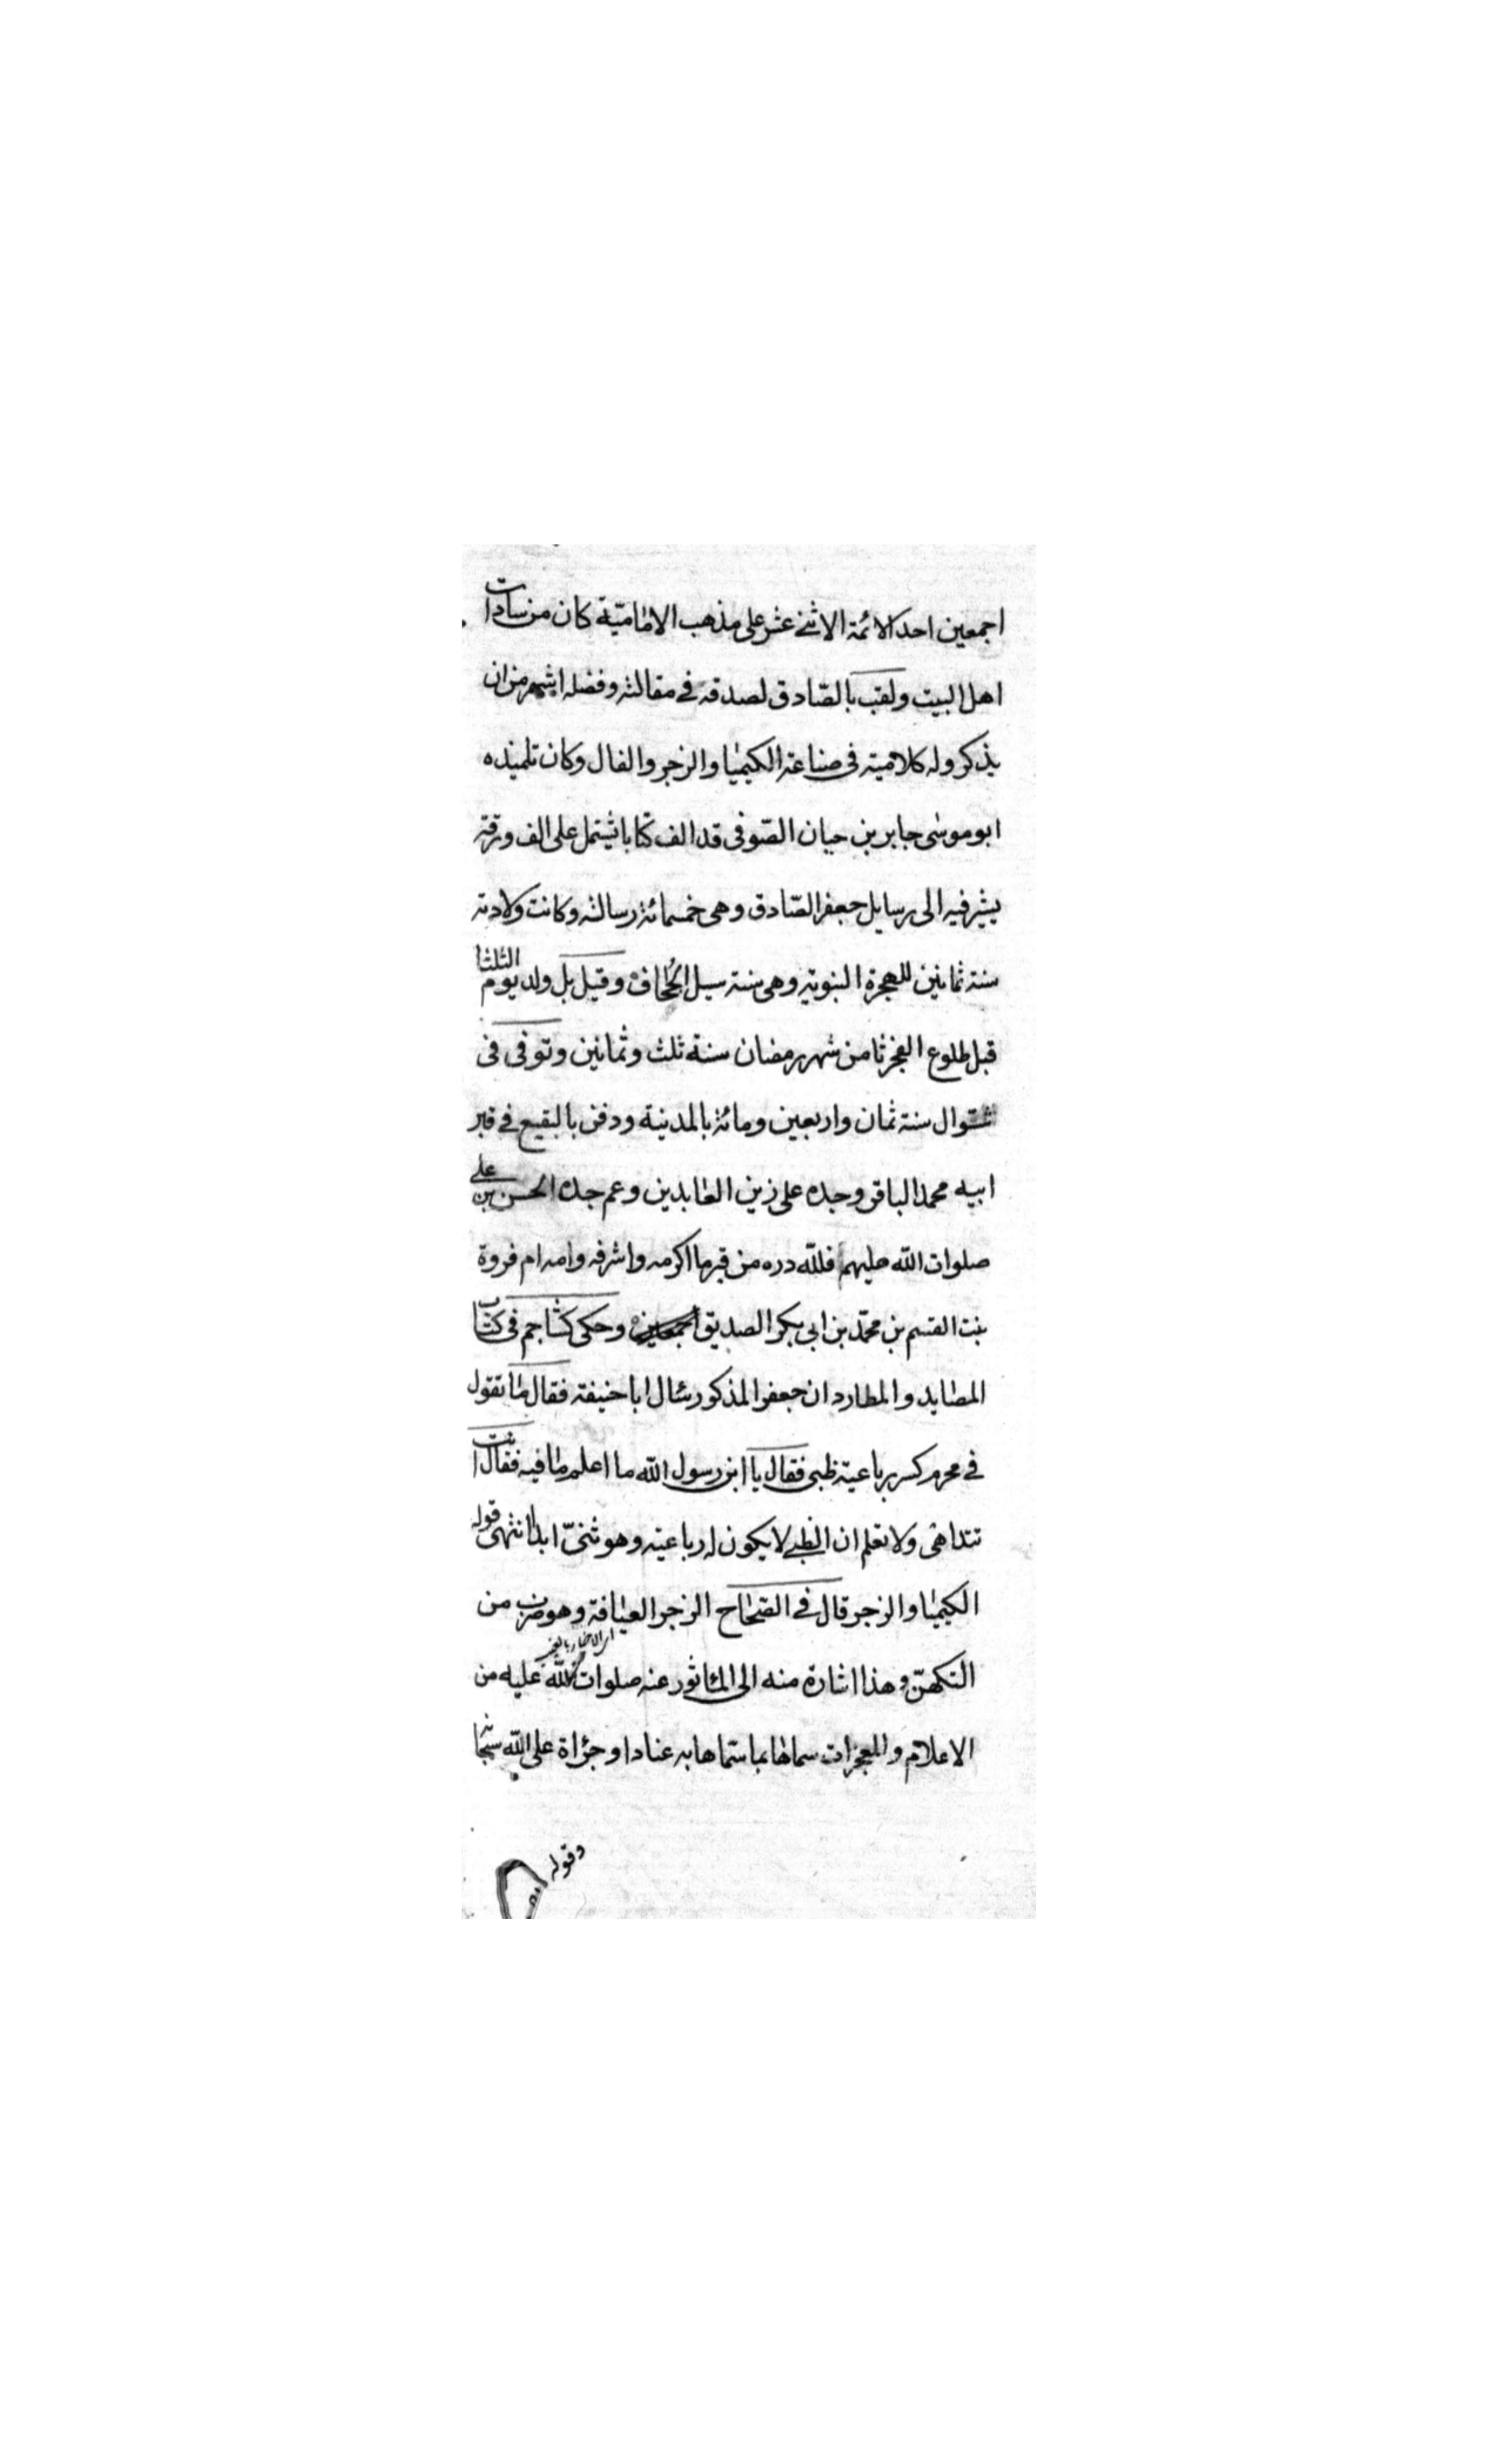 اجمعين احد الائمة الاثنے عشر على مذهب الامامية كان من سادات
اهل البيت ولقب بالصّادق لصدقه فے مقالته وفضله اشهر من ان
يذكر وله كلامية فى صناعة الكيميا والزجر والفال وكان تلميذه
ابو موسى جابر بن حيان الصّوفى قد الف كتابا يشتمل على الف ورقة
يشير فيه الى رسايل جعفر الصّادق وهى خمسمائة رسالة وكانت ولادته
سنة ثمانين للهجرة النبوية وهى سنة سيل الجحاف وقيل بل ولد يوم الثلثا
قبل طلوع الفجر ثامن شهر رمضان سنة ثلث وثمانين وتوفى فى
شوال سنة ثمان واربعين ومائة بالمدينة ودفن بالبقيع فے قبر
ابيه محمد الباقر وجده على زين العابدين وعم جده الحسن بن على
صلوات اللّه عليهم فللّه دره من قبر ما اكرمه واشرفه وامه ام فروة
بنت القسم بن محمّد بن ابى بكر الصديق وحكى كشاجم فى كتاب
المصايد والمطارد ان جعفر المذكور سئال ابا حنيفة فقال ما تقول
فے محرم كسر رباعية ظبى فقال يا ابن رسول اللّه ما اعلم ما فيه فقال انت
تتداهى ولا تعلم ان الظبے لا يكون له رباعية وهو ثنىّ ابدا انتهى قوله
الكيميا والزجر قال فے الصّحاح الزجر العيافة وهو ضرب من
التكهّن وهذا اشارة منه الى المأثور عنه صلوات اللّه عليه من
الاعلام والمعجزات سماها بما سماها به عنادا وجرأة على اللّه سبحانه
وقوله